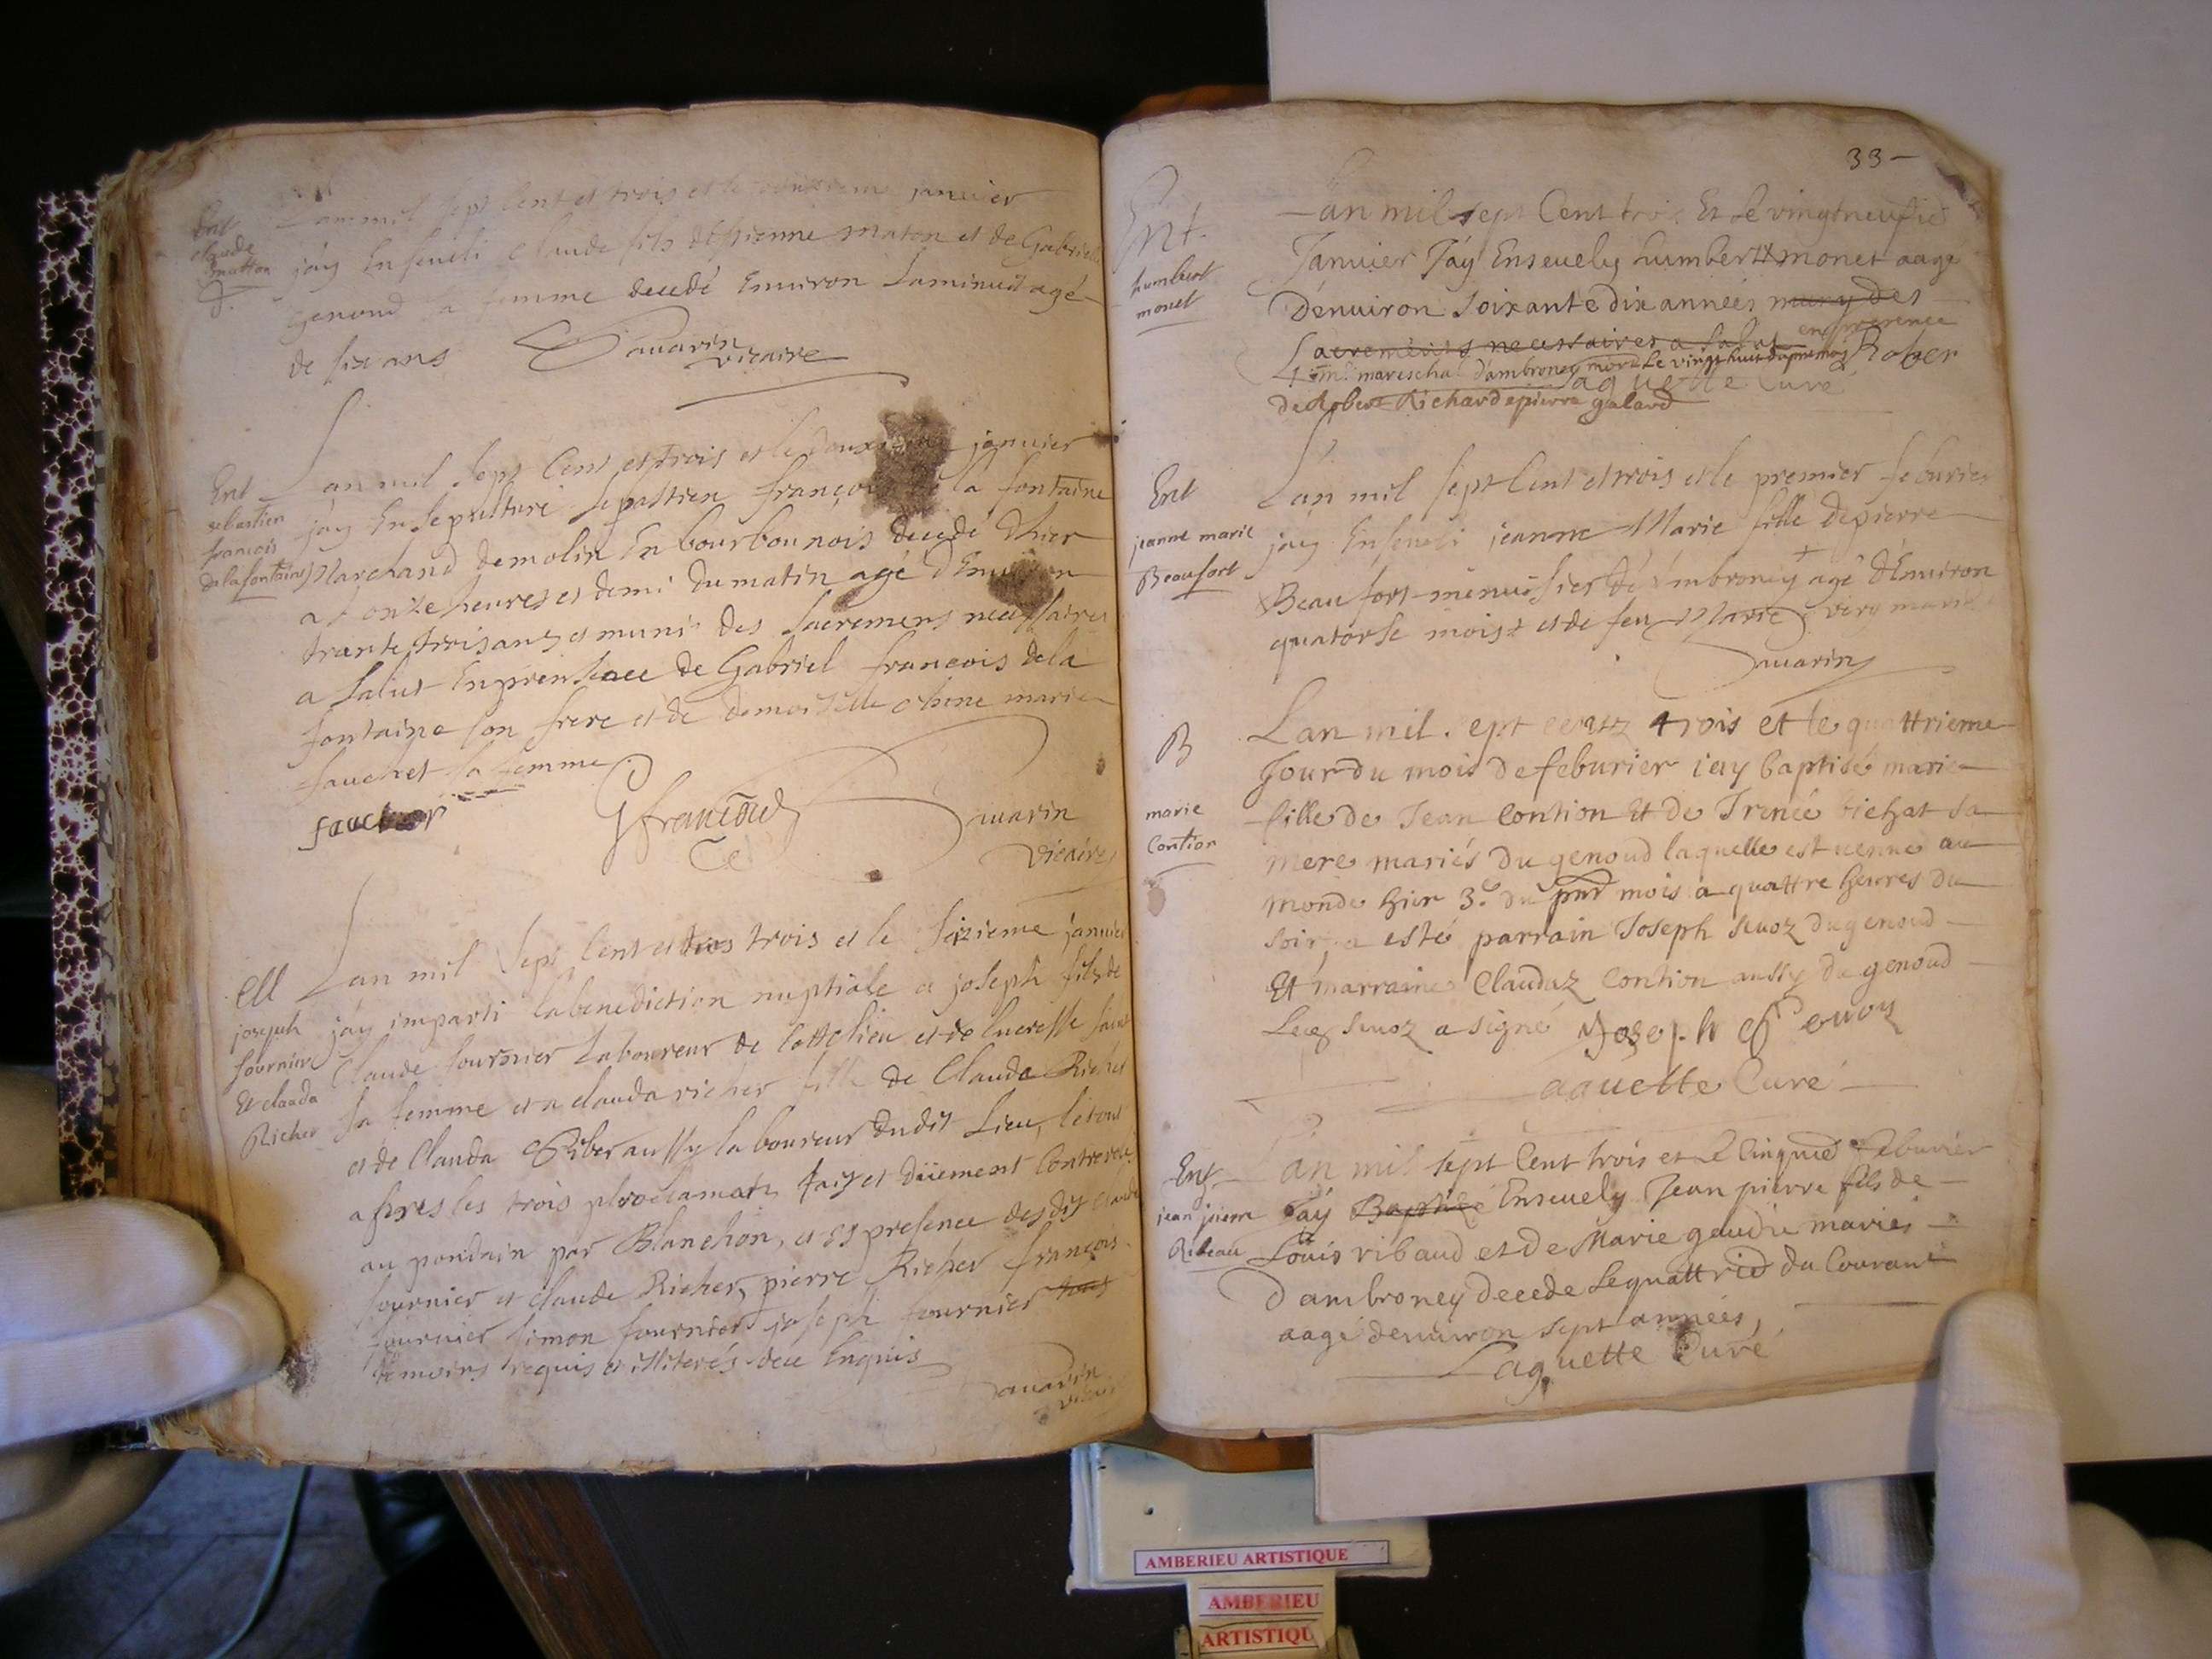 Ent
claude
matton
Lan mil sept Cent et trois et le janvier
jay Enseveli Claude fils destienne maton et de Gabrielle
genoud sa femme decedé Environ laminuit agé
de six ans Savarin
vicaire
Ent
sebastien
francois
delafontaine
Lan mil Sept Cent et trois et le janvier
jay En sepulture sepastien françois de la fontaine
Marchand de molin En bourbounois decedé Dhier
a onze heures et demi du matin agé d'Environ
trante trois ans et muni des sacremens necessaires
a salut En presence de Gabriel francois dela
fontaine son frere et de demoiselle marie
fauchet sa femme
faucher G francois Savarin
vicaire
M
joseph
fournier
Et clauda
Richer
Lan mil Sept Cent et trois et le seizieme janvier
jay imparti la benediction nuptiale a joseph fils de
Claude fournier Laboureur de Cottelieu et de lucresse
sa femme et a clauda richer fille de Claude Richer
et de Clauda Riber aussy laboureur dudit Lieu, le tout
apres les trois proclamat fait et düement Controlé
au pondain par Blanchon, et Es presence desdit claude
fournier et claude Richer, pierre Richer françois
fournier simon fournier joseph fournier tous
temoins requis et illiterés de ce Enquis
Savarin
vicaire
33-
Ent.
humbert
monet
Lan mil sept Cent trois Et le vingtneufie
Janvier Jáy Ensevely humbert monet aagé
Dénviron soixante dix années muny des
Sacrements necessaires a salut en presence
mareschal dambroney mort le vingt huit du pnt mois Rober
de Robert Richard e pierre galard
Laguette Curé
Ent
jeanne marie
Beaufort
Lan mil sept Cent et trois et le premier feburier
jay Enseveli jeanne Marie fille de pierre
Beaufort menuisier de Embroney + agé d'Environ
quatorse mois + et de feu Marie very marié
Savarin
B
marie
Contion
Lan mil sept centz trois et le quattrieme
Jour du mois de feburier iay baptisé marie
fille de Jean Contion Et de Irenée bichat sa
mere mariés du genoud laquelle est venue au
monde hier 3.e du pnt mois a quattre heures du
soir, a esté parrain Joseph Sevoz du genoud
Et marraine Claudaz Contion aussy du genoud
Led Sevoz a signé Joseph Sevoz
Laguette Curé
Ent
jean pierre
Ribeau
Lan mil sept Cent trois et le Cinquie Feburier
Jáy Baptizé Ensevely Jean pierre fils de
Louis ribaud et de Marie gaudie mariés
Dambroney decede le quattrie du Courant
aagé denviron sept années,
Laguette Curé
AMBERIEU ARTISTIQUE
AMBERIEU
ARTISTIQU